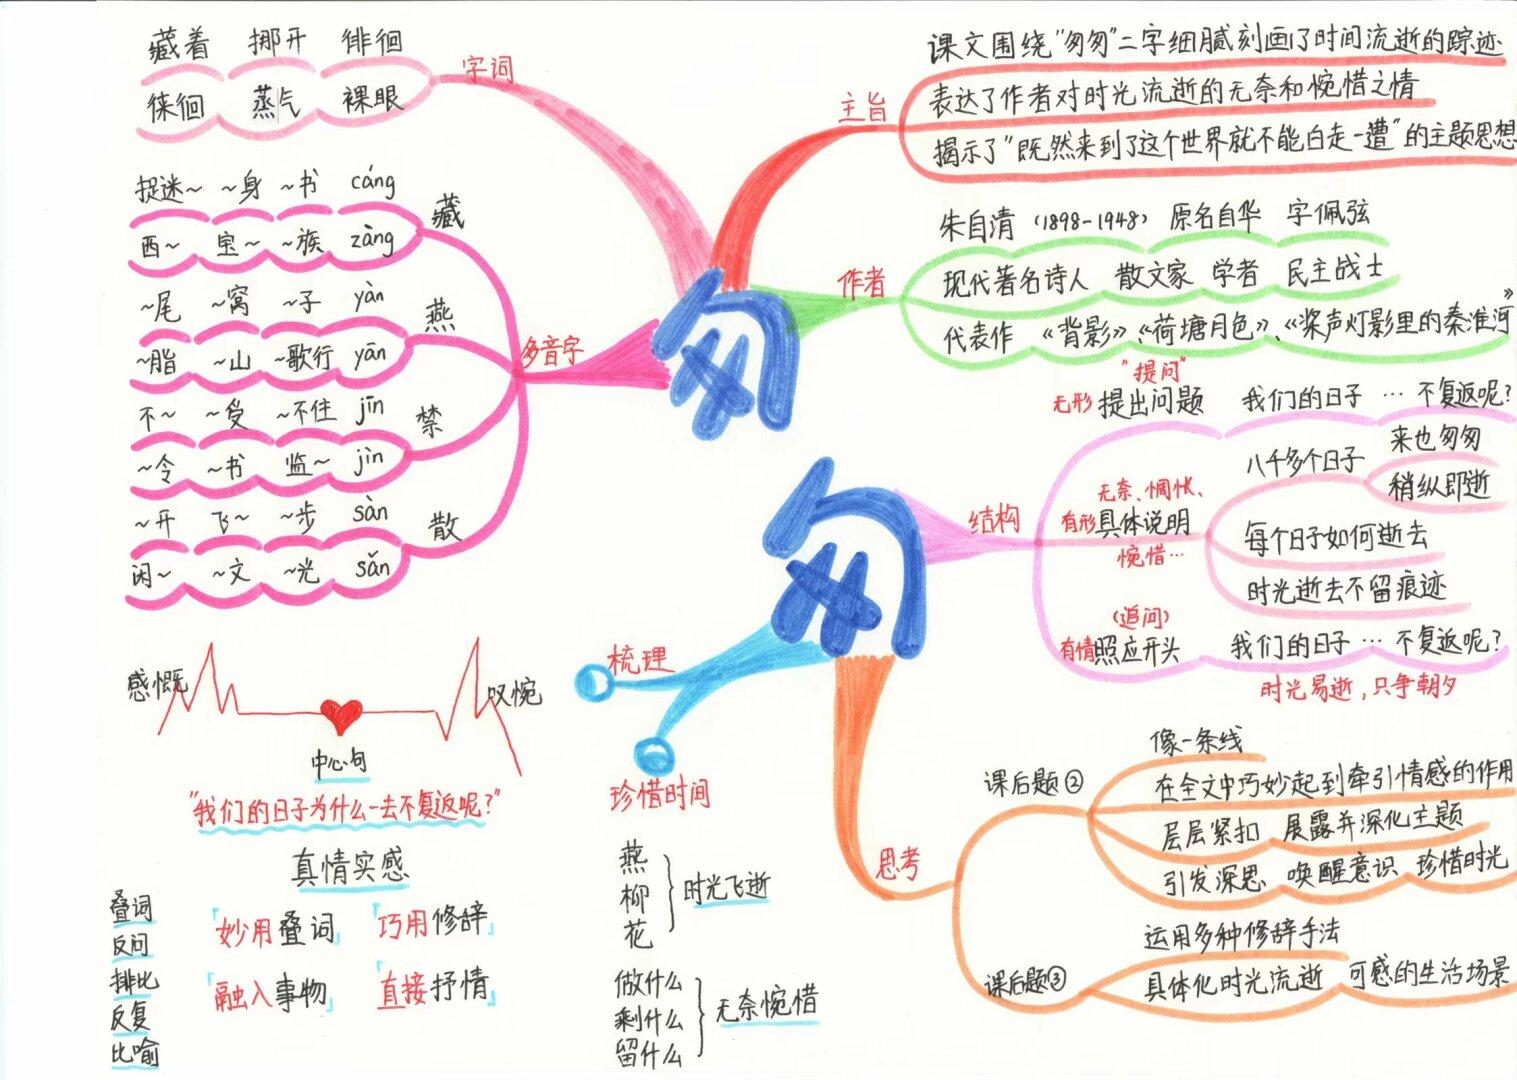 藏着 挪开 徘徊
徕徊 蒸气 裸眼
字词
捉迷~ ~身 ~书 cáng
西~ 宝~ ~族 zàng
藏
~尾 ~窝 ~子 yàn
~脂 ~山 ~歌行 yān
燕
不~ ~受 ~不住 jīn
~令 ~书 监~ jìn
禁
~开 飞~ ~步 sàn
闲~ ~文 ~光 sǎn
散
多音字
匆
匆
主旨
课文围绕"匆匆"二字细腻刻画了时间流逝的踪迹
表达了作者对时光流逝的无奈和惋惜之情
揭示了"既然来到了这个世界就不能白走一遭"的主题思想
作者
朱自清 (1898-1948) 原名自华 字佩弦
现代著名诗人 散文家 学者 民主战士
代表作 《背影》《荷塘月色》、《桨声灯影里的秦淮河》
结构
"提问"
无形 提出问题 我们的日子 … 不复返呢?
无奈、惆怅、
有形具体说明
惋惜…
八千多个日子
来也匆匆
稍纵即逝
每个日子如何逝去
时光逝去不留痕迹
(追问)
有情照应开头 我们的日子 … 不复返呢?
时光易逝,只争朝夕
思考
课后题②
像一条线
在全文中巧妙起到牵引情感的作用
层层紧扣 展露并深化主题
引发深思 唤醒意识 珍惜时光
课后题③
运用多种修辞手法
具体化时光流逝 可感的生活场景
梳理
珍惜时间
燕
柳
花
时光飞逝
做什么
剩什么
留什么
无奈惋惜
感慨
叹惋
中心句
"我们的日子为什么一去不复返呢?"
真情实感
叠词
反问
排比
反复
比喻
「妙用叠词」 「巧用修辞」
「融入事物」 「直接抒情」